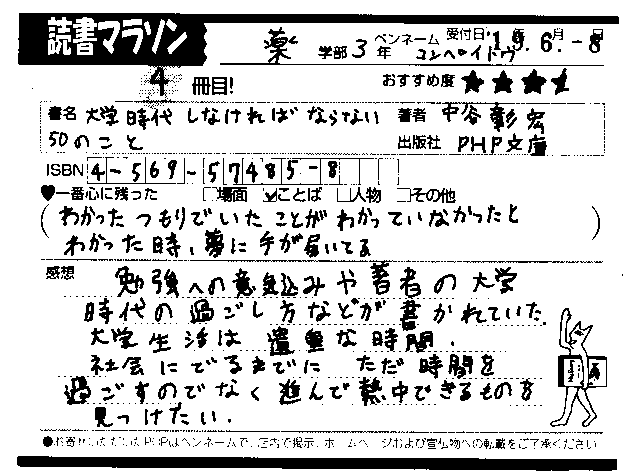 読書マラソン
薬 学部 3 年 ペンネーム コンペイトウ 受付日 '1 9. 6. -8
4 冊目! おすすめ度 ★★★
書名 大学時代しなければならない 著者 中谷彰宏
50のこと 出版社 PHP文庫
ISBN 4-569-57485-8
♥一番心に残った □場面 ☑ことば □人物 □その他
(わかったつもりでいたことがわかっていなかったと
わかった時、夢に手が届いてる)
感想 勉強への意気込みや著者の大学
時代の過ごし方などが書かれていた.
大学生活は 遺重な時間.
社会にでるまでに ただ時間を
過ごすのでなく 進んで熱中できるものを
見つけたい.
●お寄せいただいたPOPはペンネームで、店内で掲示、ホームページおよび宣伝物への転載をご了承ください